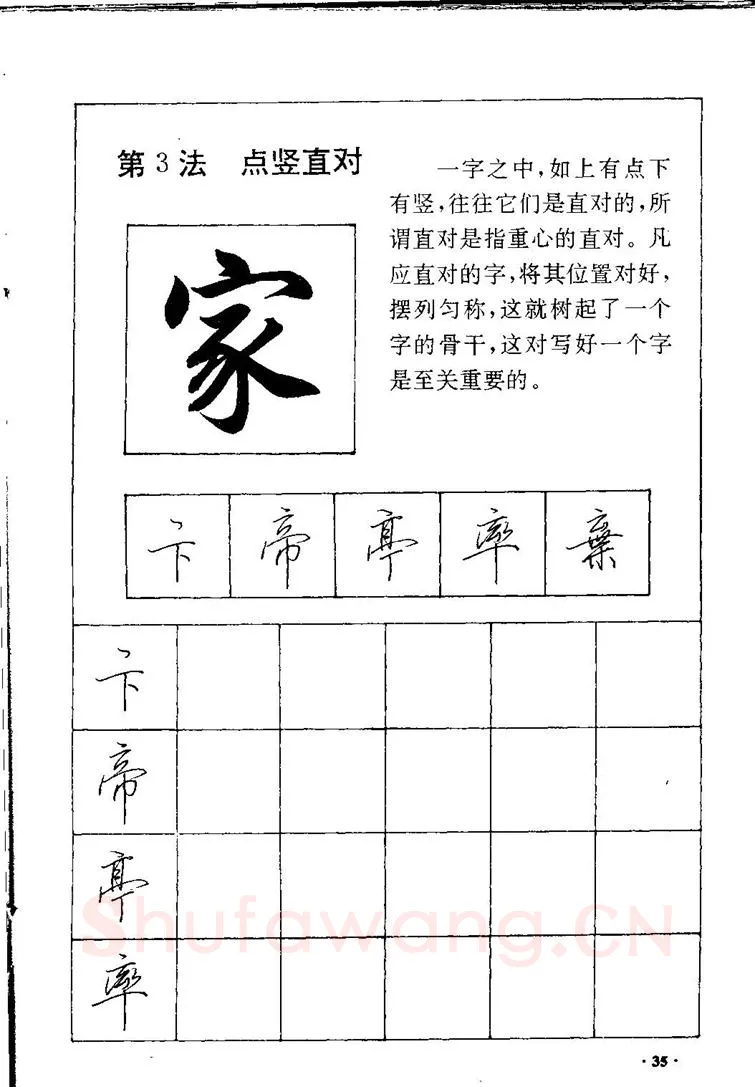 第3法 点竖直对
一字之中，如上有点下
有竖，往往它们是直对的，所
谓直对是指重心的直对。凡
应直对的字，将其位置对好，
摆列匀称，这就树起了一个
字的骨干，这对写好一个字
是至关重要的。
家
卞 帝 亭 率 棄
卞
帝
亭
率
Shufawang.CN
·35·